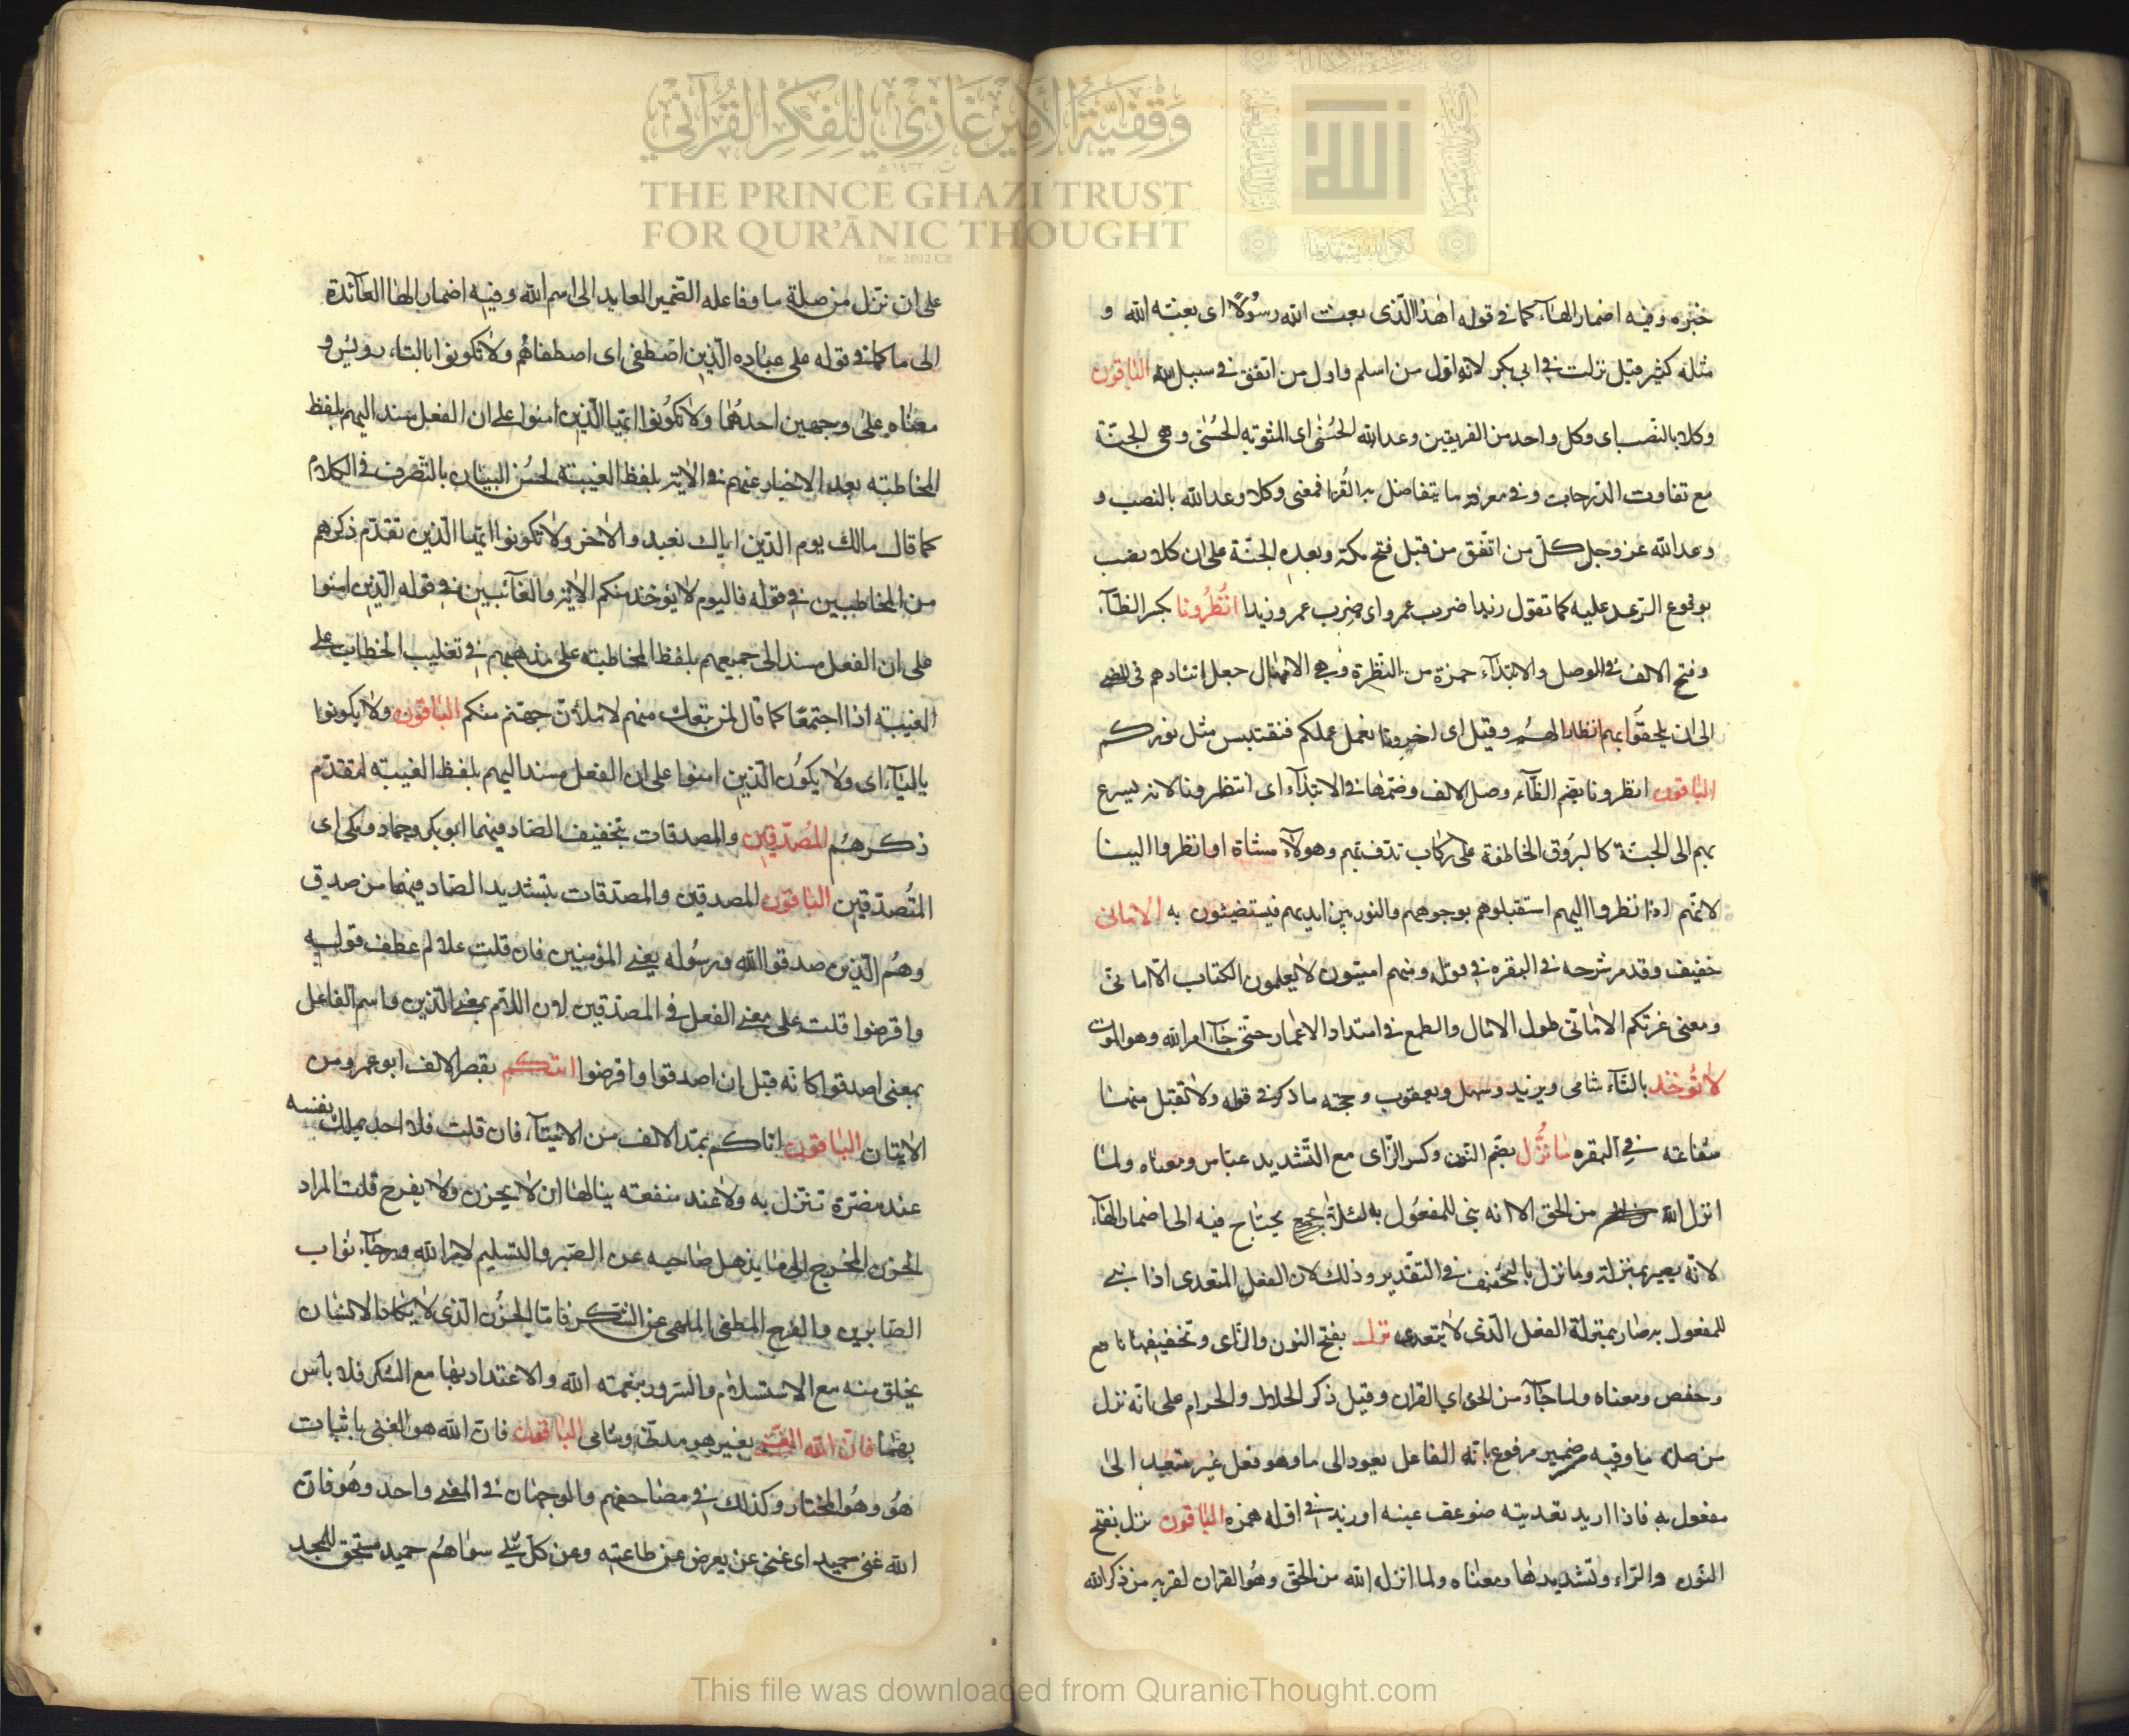 وقفية الأمير غازي للفكر القرآني
THE PRINCE GHAZI TRUST
FOR QUR'ĀNIC THOUGHT
Est. 2012 CE
خبره وفيه اضمار الهاء كما في قوله اهذا الّذى بعث الله رسُولًا اى بعثه الله و
مثله كثير قيل نزلت في ابى بكر لانه اوّل من اسلم واول من انفق في سبيل الله الباقون
وكلا بالنصب اى وكل واحد من الفريقين وعد الله الحُسْنٰى اى المثوبه الحُسْنٰى وهى الجنّة
مع تفاوت الدّرجات وفي معرفة ما يتفاضل به القُرا فمعنى وكلا وعد الله بالنصب و
وعد الله عز وجل كلّ من انفق من قبل فتح مكة وبعده الجنّة على ان كلا نصب
بوقوع الوعد عليه كما تقول زيدا ضرب عمرو اى ضرب عمرو زيدا انظُرُونا بكسر الظّاء
وفتح الالف في الوصل والابتداء حمزة من النّظرة وهى الامهال جعل اتئادهم في المضى
الى ان يلحقُوا بهم انظارا لهُم وقيل اى اخرونا نعمل عملكم فنقتبس مثل نوركم
الباقون انظرونا بضم الظّاء وصل الالف وضمّها في الابتداء اى انتظرونا لانه يسرع
بهم الى الجنّة كالبرُوق الخاطفة على ركاب تدف بهم وهولاء مشاة او انظروا الينا
لانّهم اذا نظروا اليهم استقبلوهم بوجوههم والنور بين ايديهم فيستضيئون به الامانى
خفيف وقد مر شرحه في البقره في قوله ومنهم اميّون لا يعلمون الكتاب الّا امانىّ
ومعنى غرتكم الامانىّ طول الامال والطمع في امتداد الاعمار حتّى جاء امر الله وهو الموت
لا تُوخذ بالتّاء شامى ويزيد وسهل ويعقوب وحجته ما ذكر في قوله ولا تقبل منها
شفاعته في البقره مَا نُزِّل بضم النّون وكسر الزّاى مع التّشديد عبّاس ومعناه ولما
انزل الله من الحق الا انه بنى للمفعُول به لئلا يحتاج فيه الى اضمار الهاء
لانّه يصير بمنزلة وما نزل بالتّخفيف في التقدير وذلك لان الفعل المتعدى اذا بنى
للمفعول به صار بمنزلة الفعل الّذى لا يتعدى نزل بفتح النون والزّاى وتخفيفها نافع
وحفص ومعناه ولما جاء من الحق اي القران وقيل ذكر الحلال والحرام على انّه نزل
من صلة ما وفيه ضمير مرفوع بانّه الفاعل يعود الى ما وهو فعل غير متعد الى
مفعول به فاذا اريد تعديته ضوعف عينه او زيد في اوله همزه الباقون نزل بفتح
النّون والزاء وتشديدها ومعناه ولما انزل الله من الحقّ وهُو القران لقربه من ذكر الله
على ان نزّل من صلة ما وفاعله الضّمير العايد الى اسم الله وفيه اضمار الها العآئدة
الى ما كما في قوله على عباده الّذين اصطفى اى اصطفاهُم ولا تكونوا بالتاء رويس و
معناه على وجهين احدهُما ولا تكُونوا ايّها الّذين امنوا على ان الفعل مسند اليهم بلفظ
المخاطبته بعد الاخبار عنهم في الاية بلفظ الغيبة لحسُن البيان بالتّصرف في الكلام
كما قال مالك يوم الدّين اياك نعبد والاخر ولا تكونوا ايّها الّذين تقدّم ذكرهم
من المخاطبين في قوله فاليوم لا يؤخذ منكم الاية والغآئبين في قوله الّذين امنوا
على ان الفعل مسند الى جميعهم بلفظ المخاطبة على مذهبهم في تغليب الخطاب على
الغيبة اذا اجتمعا كما قال لمن تبعك منهم لاملأنّ جهنّم منكم الباقون ولا يكونوا
باليآء اى ولا يكُون الّذين امنوا على ان الفعل مسند اليهم بلفظ الغيبة لمتقدّم
ذكرهُم المُصدّقين والمصدقات بتخفيف الصّاد فيهما ابو بكر وحماد ومكى اى
المُتصدّقين الباقون المصدقين والمصدّقات بتشديد الصّاد فيهما من صدق
وهُم الّذين صدقوا الله ورسُوله يعنى المؤمنين فان قلت علام عطف قوله
واقرضوا قلت على معنى الفعل في المصدّقين لان اللام بمعنى الّذين واسم الفاعل
بمعنى اصدقوا كانّه قيل ان اصدقوا واقرضوا اتٰكم بقصر الالف ابو عمرو من
الاتيان الباقون اتاكم بمدّ الالف من الايتآء فان قلت فلا احد يملك نفسه
عند مضرّة تنزل به ولا عند منفعته ينالها ان لا يحزن ولا يفرح قلت المراد
الحزن المخرج الى ما يذهل صاحبه عن الصّبر والتسليم لامر الله ورجآء ثواب
الصّابرين والفرح المطغى الملهى عن الشكر فامّا الحزُن الّذى لا يكاد الانسان
يخلق منه مع الاستسلام والسّرور بنعمته الله والاعتداد بها مع الشكر فلا باس
بهمَا فانّ الله الغنىّ بغير هو مدنىّ وشامى الباقون فان الله هو الغنى باثبات
هُو وهُو المختار وكذلك في مصاحفهم والوجهان في المعنى واحد وهُو فانّ
الله غنىّ حميد اى غنى عن يعرض عن طاعته وعن كلّ شى سواهُم حميد مستحق للمجد
This file was downloaded from QuranicThought.com